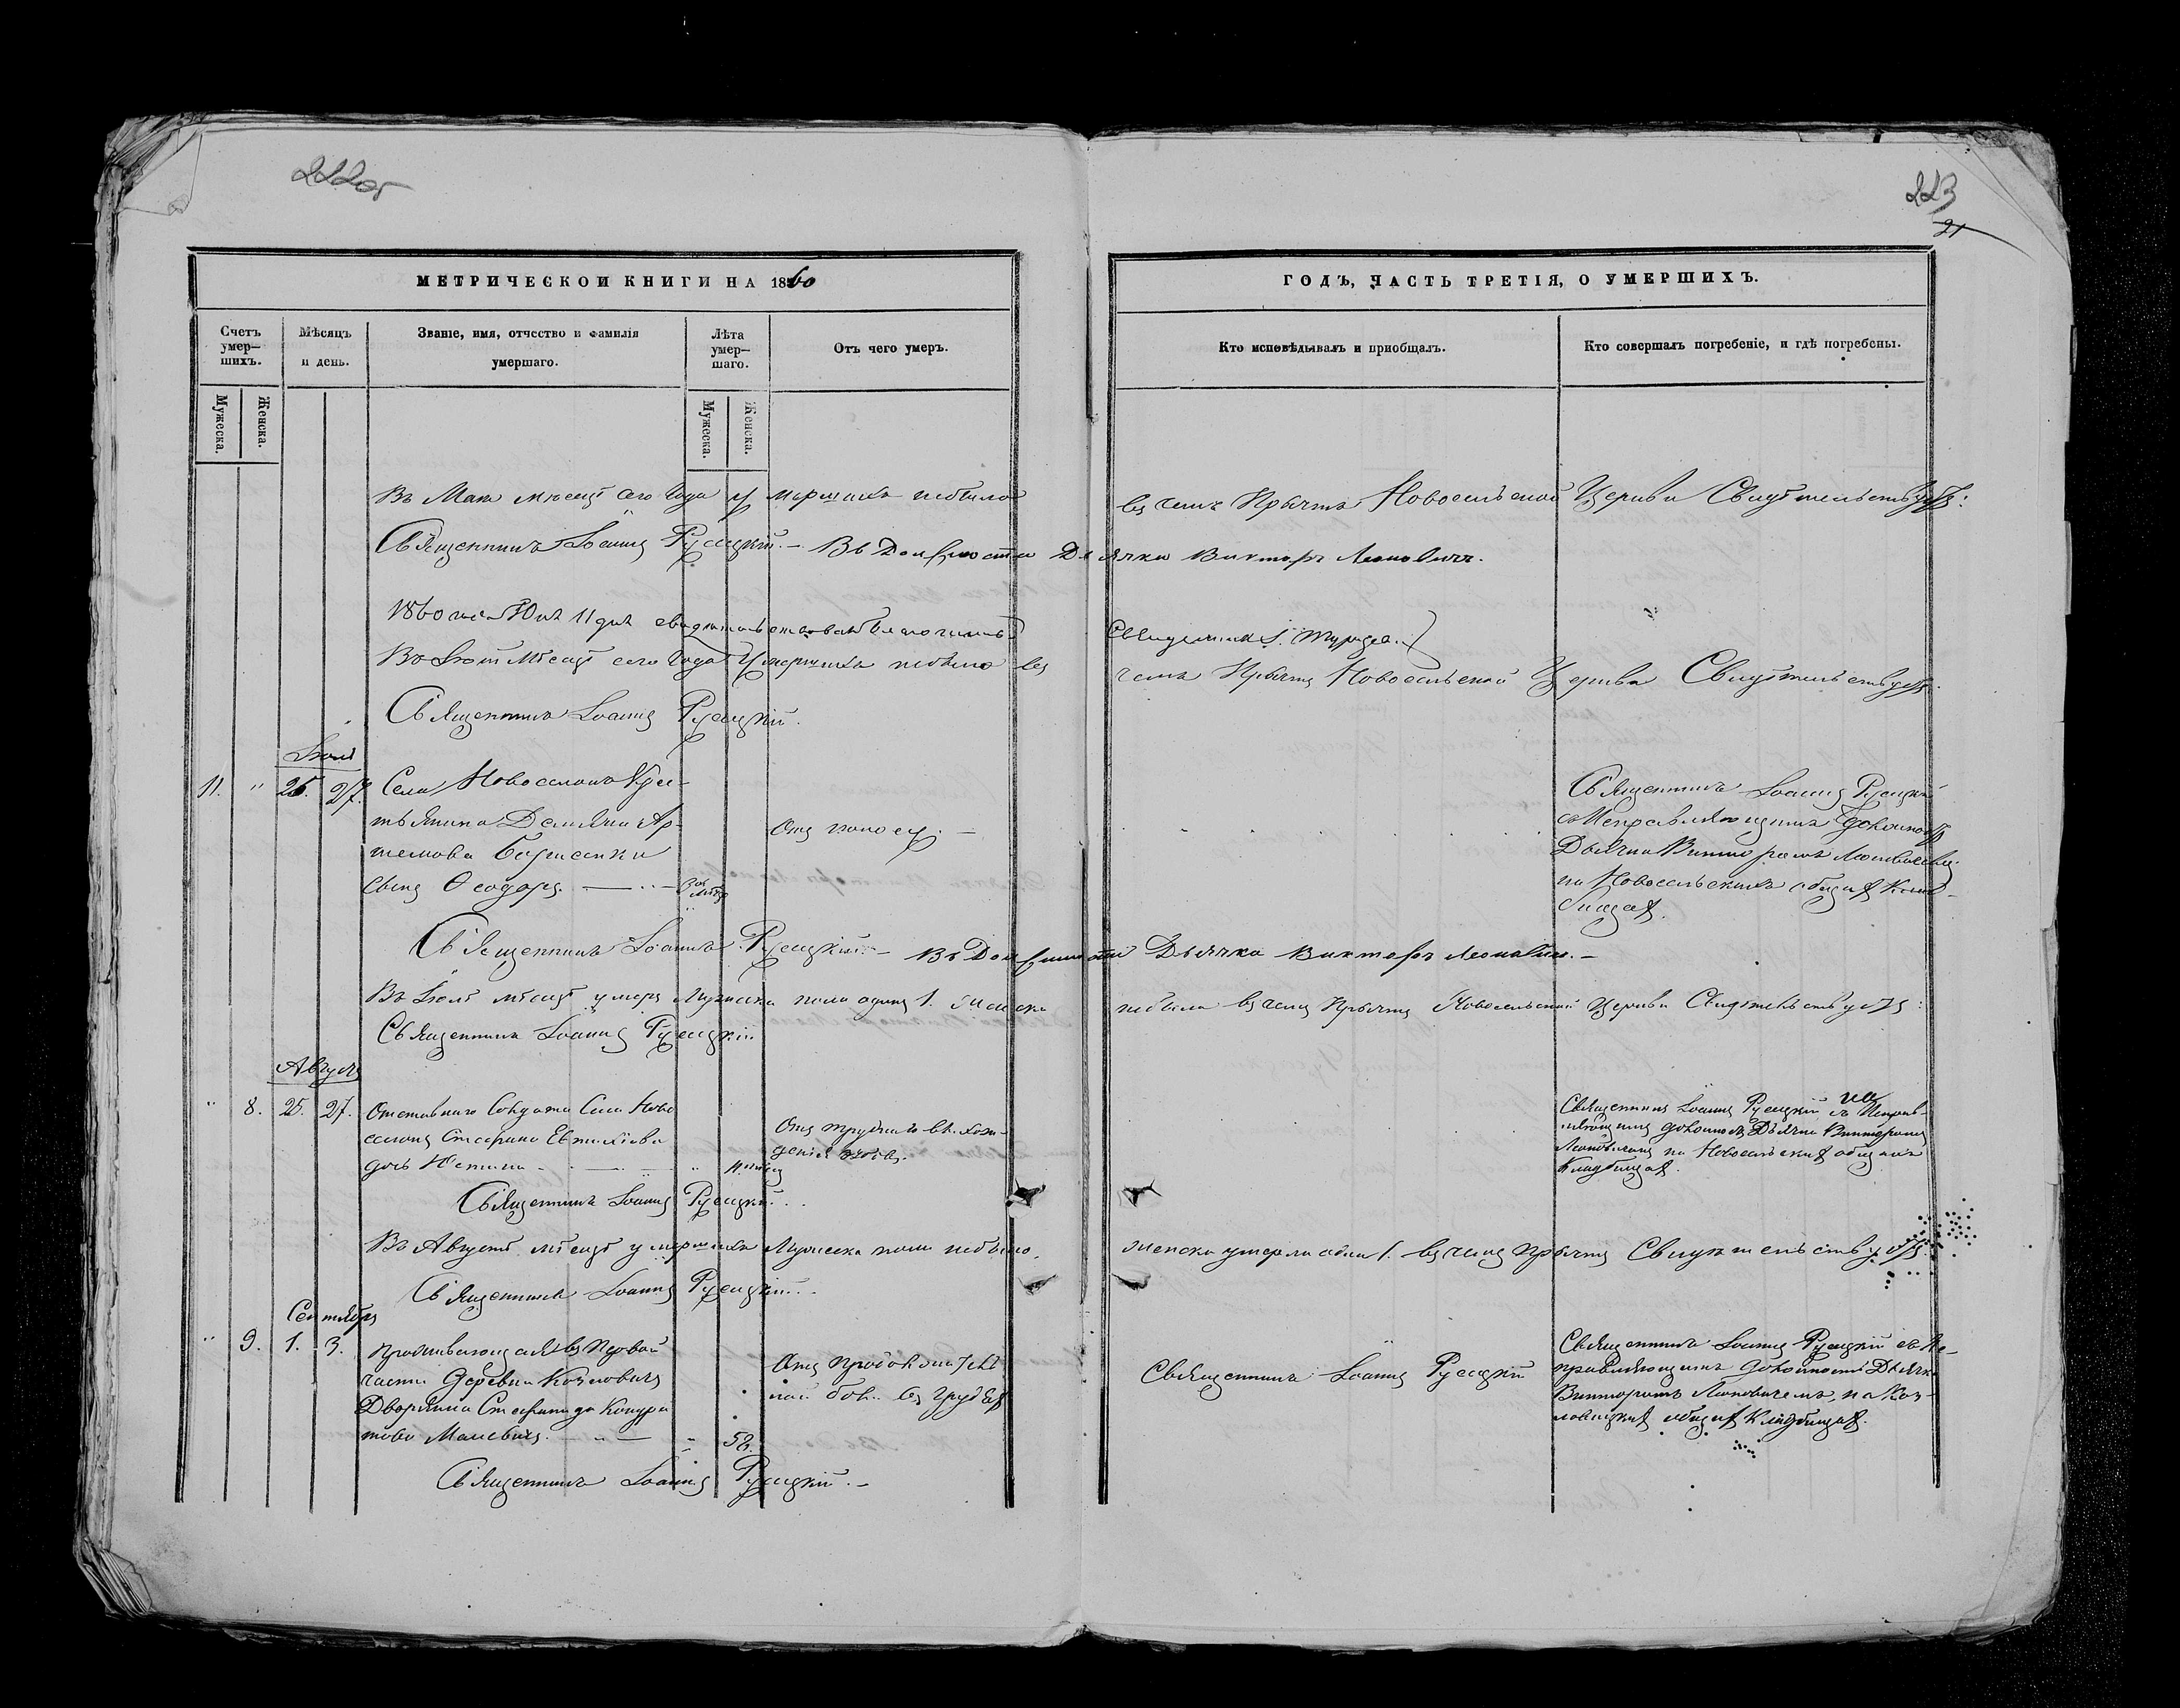 222об
223
21
МЕТРИЧЕСКОЙ КНИГИ НА 1860
ГОДЪ, ЧАСТЬ ТРЕТІЯ, О УМЕРШИХЪ.
Счетъ умер-шихъ.
Мѣсяцъ и день.
Званіе, имя, отчество и фамилія умершаго.
Лѣта умер-шаго.
Отъ чего умеръ.
Кто исповѣдывалъ и пріобщалъ.
Кто совершалъ погребеніе, и гдѣ погребены.
Мужеска.
Женска.
Мужеска.
Женска.
Въ Маи мѣсяцѣ сего года умершихъ небыло въ чемъ Причтъ Новосельской Церкви Свидѣтельствуетъ:
Священникъ Іоаннъ Русецкій. — Въ Должности Дьячка Викторъ Леоновичъ.
1860 года Юня 11 дня свидѣтельствовалъ Благочинный
Священникъ І.
Въ Іюнѣ Мѣсяцѣ сего года Умершихъ небыло въ чемъ Причтъ Новосельской Церкви Свидѣтельствуетъ.
Священникъ Іоаннъ Русецкій.
Іюль
11. " 25. 27. Села Новоселокъ Крес-
тьянина Демьяна Ар-
темова Борисенки
сынъ Ѳеодоръ. — " —
Отъ поносу. —
Священникъ Іоаннъ Русецкій
съ Исправляющимъ должность
Дьячка Викторомъ Леоновичемъ
на Новосельскомъ общемъ Клад-
бищѣ.
Священникъ Іоаннъ Русецкій. — Въ Должности Дьячка Викторъ Леоновичъ. —
Въ Іюлѣ мѣсяцѣ умеръ Мужеска пола одинъ 1. Женска небыло въ чемъ Причтъ Новосельской Церкви Свидѣтельствуетъ:
Священникъ Іоаннъ Русецкій
Августъ
" 8. 25. 27. Отставнаго Солдата Села Ново
селокъ
дочь
Отъ труднаго
зубовъ.
Священникъ Іоаннъ Русецкій съ Исправ-
ляющимъ должность Дьячка Викторомъ
Леоновичемъ на Новосельскомъ общемъ
Кладбищѣ.
Священникъ Іоаннъ Русецкій.
Въ Августѣ мѣсяцѣ умершихъ Мужеска пола небыло, женска умерла одна 1. въ чемъ Причтъ Свидѣтельствуетъ.
Священникъ Іоаннъ Русецкій.
Сентябрь
" 9. 1. 3. Проживающая въ Первой
части Деревни Козловичъ
Дворянка Стефанида Кондра
това Малевичъ. — " — " 58.
Отъ продолжитель
ной боли въ грудяхъ
Священникъ Іоаннъ Русецкій
Священникъ Іоаннъ Русецкій съ Ис-
правляющимъ должность Дьячка
Викторомъ Леоновичемъ, на Коз-
ловицкомъ общемъ Кладбищѣ.
Священникъ Іоаннъ Русецкій. —